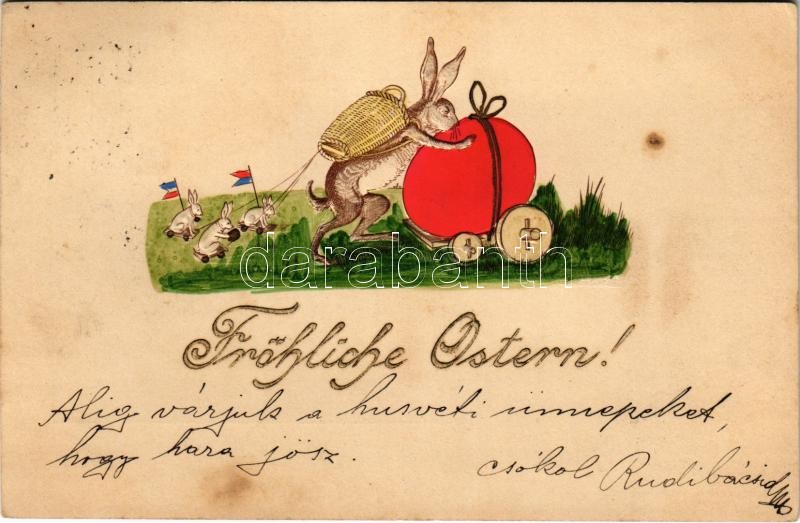 darabanth
Fröhliche Ostern!
Alig várjuk a husvéti ünnepeket,
hogy hara jösz.
csókol Rudibácsid